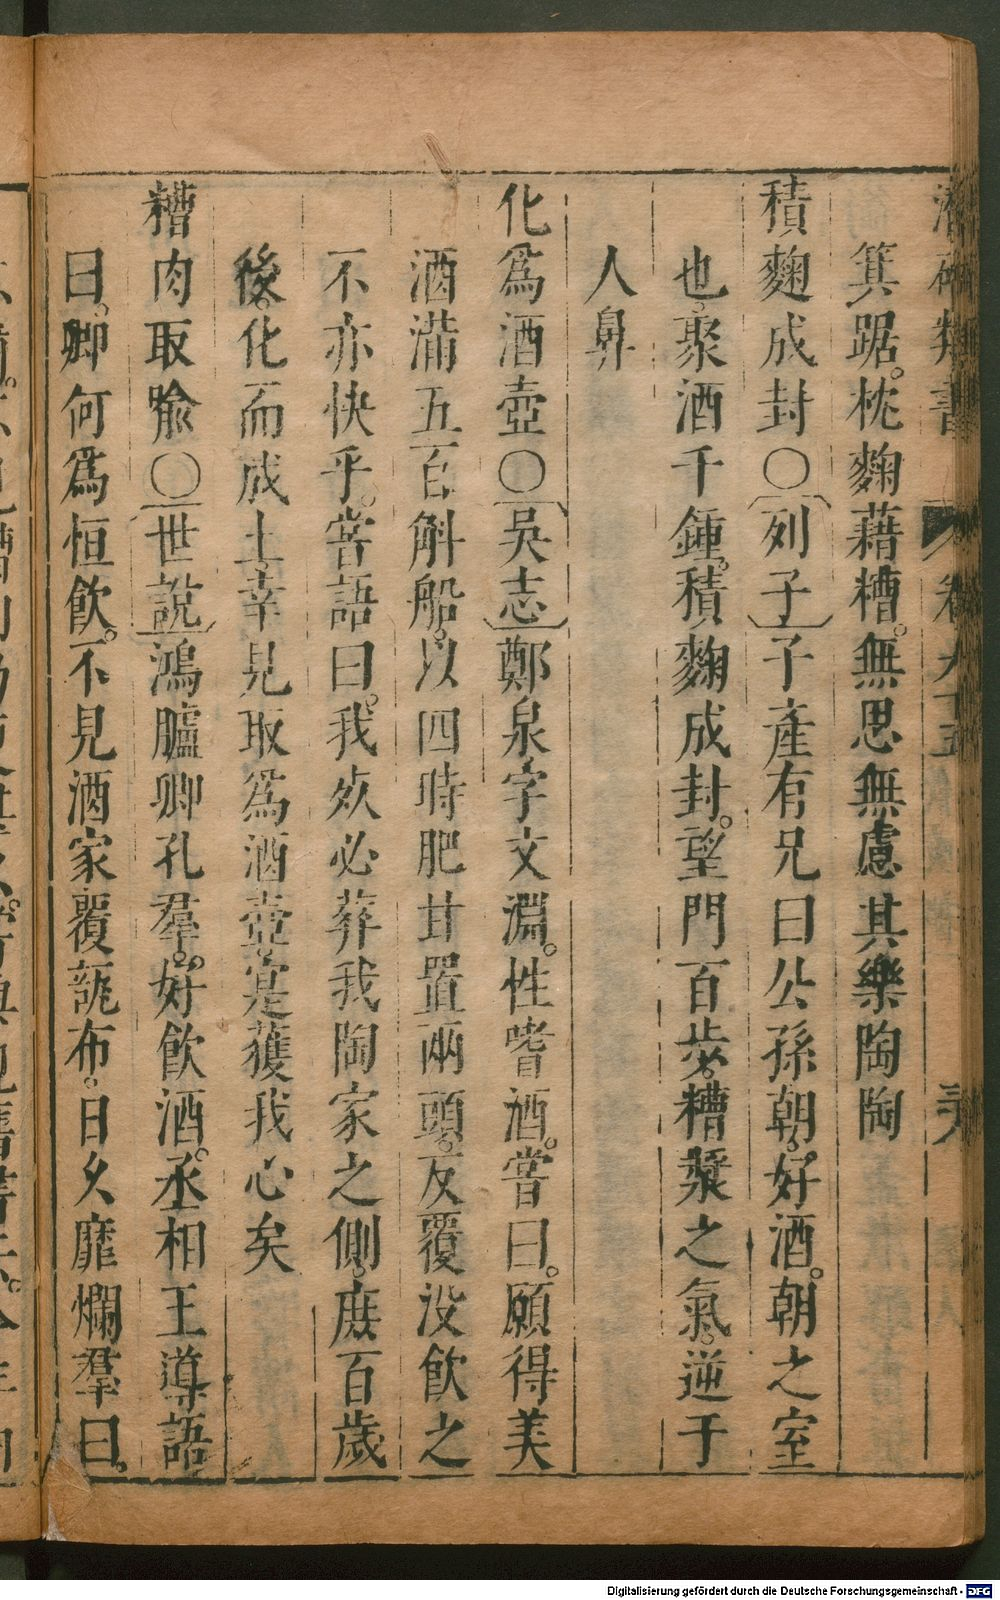 類書 卷九十五
箕踞。枕麴藉糟。無思無慮其樂陶陶
積麴成封○〔列子〕子產有兄曰公孫朝。好酒。朝之室
也。聚酒千鍾。積麴成封。望門百步。糟漿之氣。逆于
人鼻
化為酒壺○〔吳志〕鄭泉字文淵。性嗜酒。嘗曰。願得美
酒滿五百斛船。以四時肥甘置兩頭。反覆沒飲之
不亦快乎。嘗語曰。我死必葬我陶家之側。庶百歲
後。化而成土。幸見取為酒壺。寔獲我心矣
糟肉取喻○〔世說〕鴻臚卿孔羣。好飲酒。丞相王導語
曰。卿何為恒飲。不見酒家覆瓿布。日久靡爛羣曰。
Digitalisierung gefördert durch die Deutsche Forschungsgemeinschaft - DFG